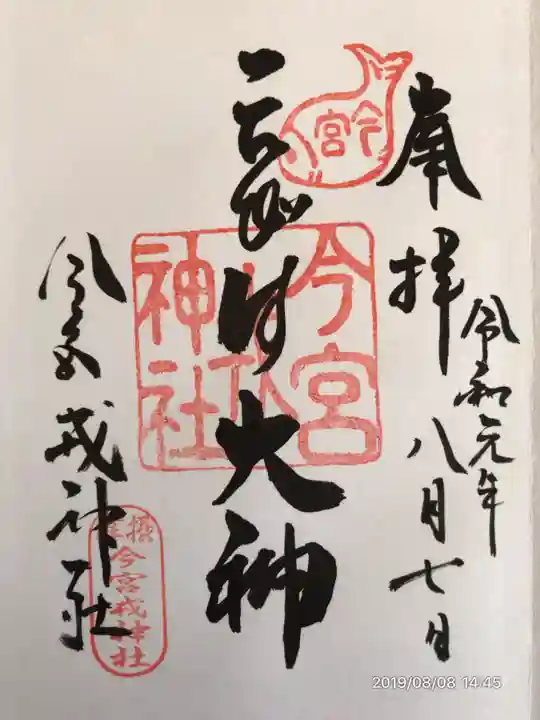 奉拝
令和元年
八月七日
今宮
大神
今宮
神社
今宮戎神社
今宮戎神社
2019/08/08 14:45